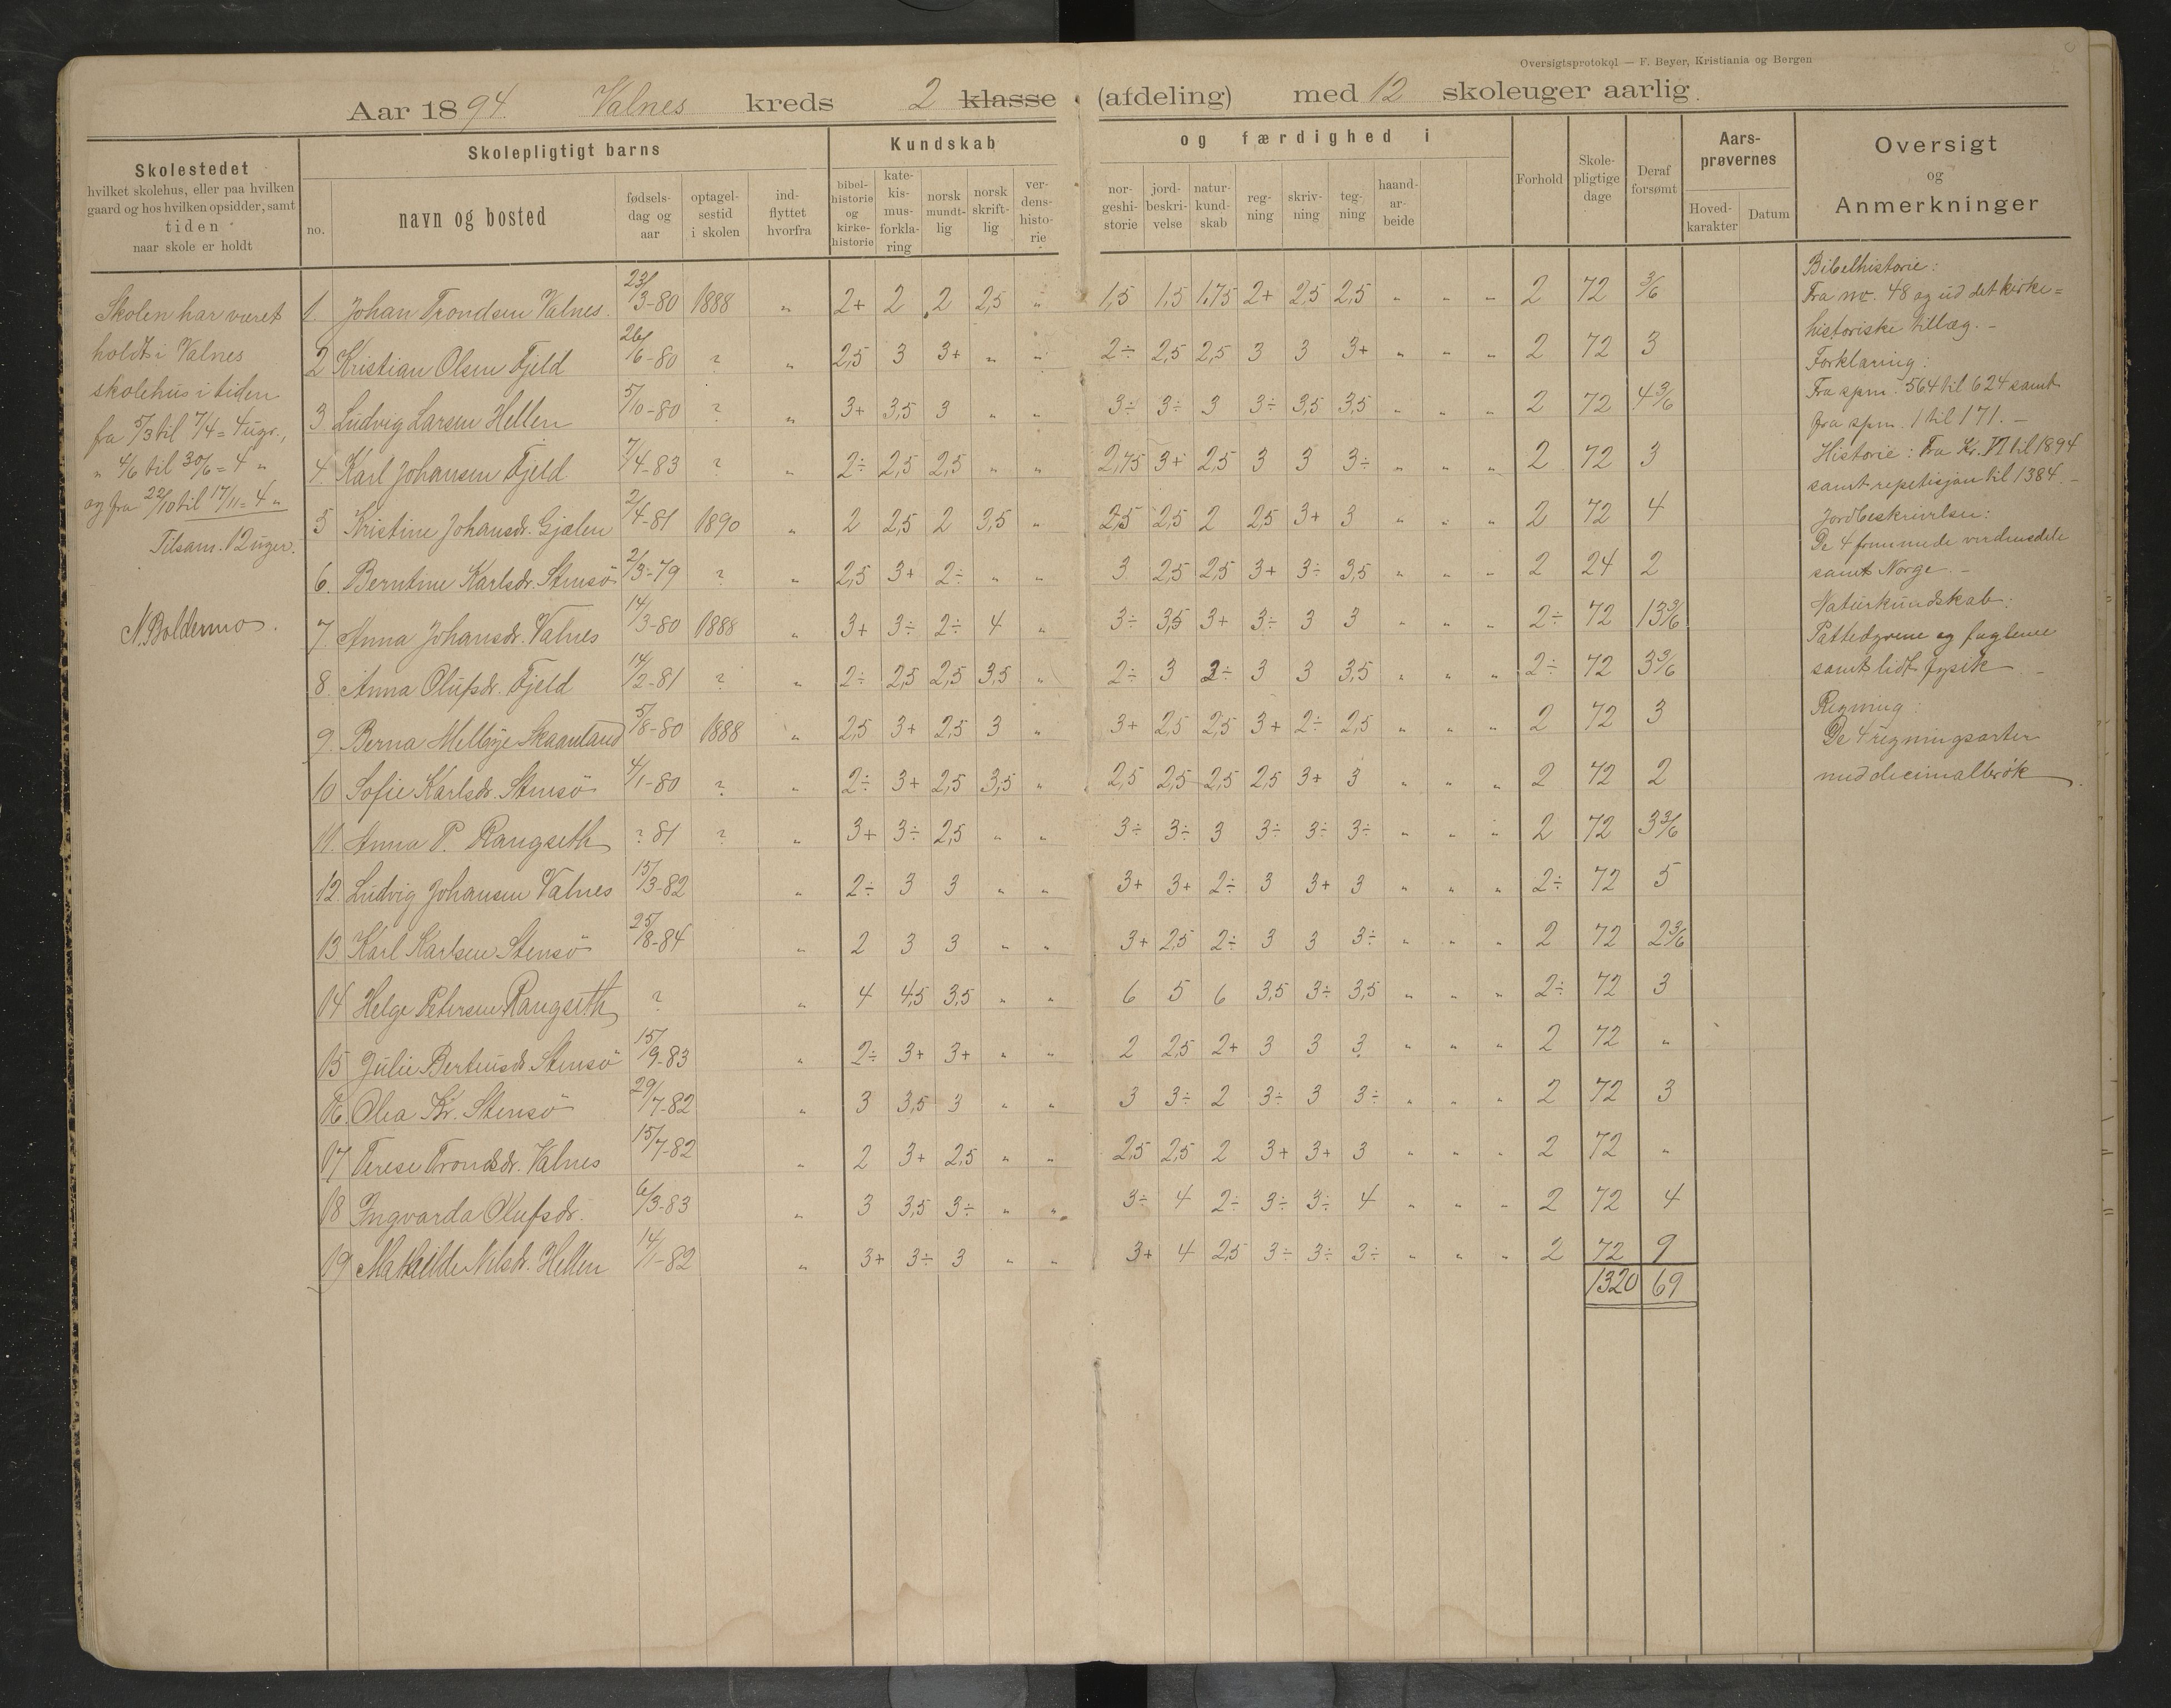 Oversigtsprotokol — F. Beyer, Kristiania og Bergen
Aar 1894. Valnes kreds 2 klasse (afdeling) med 12 skoleuger aarlig.
Skolestedet
hvilket skolehus, eller paa hvilken
gaard og hos hvilken opsidder, samt
tiden
naar skole er holdt
Skolepligtigt barns
no.
navn og bosted
fødsels-
dag og
aar
optagel-
sestid
i skolen
ind-
flyttet
hvorfra
Kundskab
bibel-
historie
og
kirke-
historie
kate-
kis-
mus-
forkla-
ring
norsk
mundt-
lig
norsk
skrift-
lig
ver-
dens-
histo-
rie
og færdighed i
nor-
geshi-
storie
jord-
beskri-
velse
natur-
kund-
skab
reg-
ning
skriv-
ning
teg-
ning
haand-
ar-
beide
Forhold
Skole-
pligtige
dage
Deraf
forsømt
Aars-
prøvernes
Hoved-
karakter
Datum
Oversigt
og
Anmerkninger
Skolen har været
holdt i Valnes
skolehus i tiden
fra 5/3 til 7/4 = 4 ugr.,
" 4/6 til 30/6 = 4 "
og fra 22/10 til 17/11 = 4 "
Tilsam. 12 uger.
N. Boldermo.
1. Johan Trondsen Valnes. 23/3-80 1888 " 2+ 2 2 2,5 " 1,5 1,5 1,75 2+ 2,5 2,5 " " " 2 72 3/6
2 Kristian Olsen Fjeld 26/6-80 ? " 2,5 3 3+ " " 2÷ 2,5 2,5 3 3 3+ " " " 2 72 3
3 Ludvig Larsen Hellen 5/10-80 ? " 3+ 3,5 3 " " 3÷ 3÷ 3 3÷ 3,5 3,5 " " " 2 72 4 3/6
4. Karl Johansen Fjeld 7/4-83 ? " 2÷ 2,5 2,5 " " 2,75 3+ 2,5 3 3 3÷ " " " 2 72 3
5 Kristine Johansdr. Gjælen 2/4-81 1890 " 2 2,5 2 3,5 " 2,5 2,5 2 2,5 3+ 3 " " " 2 72 4
6. Berntine Karlsdr. Stensö 2/3-79 ? " 2,5 3+ 2÷ " " 3 2,5 2,5 3+ 3÷ 3,5 " " " 2 24 2
7. Anna Johansdr. Valnes 14/3-80 1888 " 3+ 3÷ 2÷ 4 " 3÷ 3,5 3+ 3÷ 3 3 " " " 2÷ 72 13 3/6
8. Anna Olufsdr. Fjeld 14/2-81 ? " 2÷ 2,5 2,5 3,5 " 2÷ 3 2÷ 3 3 3,5 " " " 2÷ 72 3 3/6
9. Berna Melbye Skaanland 5/8-80 1888 " 2,5 3+ 2,5 3 " 3+ 2,5 2,5 3+ 2÷ 2,5 " " " 2 72 3
10 Sofie Karlsdr. Stensö 4/1-80 ? " 2÷ 3+ 2,5 3,5 " 2,5 2,5 2,5 2,5 3+ 3 " " " 2 72 2
11. Anna P. Rangseth ? 81 ? " 3+ 3÷ 2,5 " " 3÷ 3÷ 3 3÷ 3÷ 3÷ " " " 2 72 3 3/6
12. Ludvig Johansen Valnes 15/3-82 " 2÷ 3 3 " " 3+ 3+ 2÷ 3 3+ 3 " " " 2÷ 72 5
13 Karl Karlsen Stensö 25/8-84 " 2 3 3 " " 3+ 2,5 2÷ 3 3 3÷ " " " 2 72 2 3/6
14 Helge Petersen Rangseth ? " 4 4,5 3,5 " " 6 5 6 3,5 3÷ 3,5 " " " 2÷ 72 3
15 Julie Berteusdr. Stensö 15/9-83 " 2÷ 3+ 3+ " " 2 2,5 2+ 3 3 3 " " " 2 72 "
16. Olea Kr. Stensö 29/7-82 " 3 3,5 3 " " 3 3÷ 2 3÷ 3 3÷ " " " 2 72 3
17 Terese Trondsdr. Valnes 15/7-82 " 2 3+ 2,5 " " 2,5 2,5 2 3+ 3+ 3 " " " 2 72 "
18 Ingvarda Olufsdr. 6/3-83 " 3 3,5 3÷ " " 3÷ 4 2÷ 3÷ 3÷ 4 " " " 2 72 4
19 Mathilde Nilsdr. Hellen 14/1-82 " 3+ 3÷ 3 " " 3+ 4 2,5 3÷ 3÷ 3÷ " " " 2 72 9
1320 69
Bibelhistorie:
Fra no. 48 og ud det kirke=
historiske tillæg. –
Forklaring:
Fra spm. 564 til 624 samt
fra spm. 1 til 171. –
Historie: Fra Kr. VI til 1894
samt repetisjon til 1384. –
Jordbeskrivelse:
De 4 fremmede verdensdele
samt Norge. –
Naturkundskab:
Pattedyrene og fuglene
samt lidt fysik –
Regning:
De 4 regningsarter
med decimalbrøk.